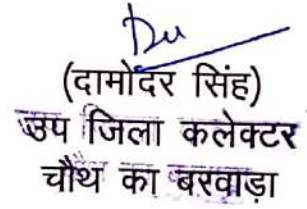 (दामोदर सिंह)
उप जिला कलेक्टर
चौथ का बरवाड़ा